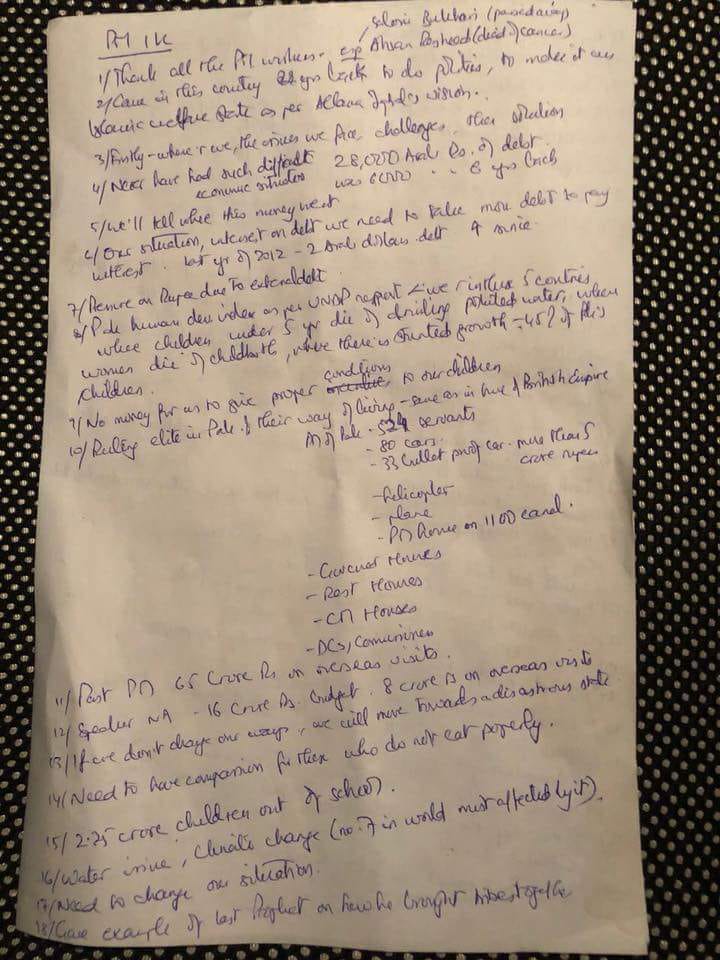 PM IK
Salonie Bukhari (passed away)
1/ Thank all the PTI workers - esp Ahsan Rasheed (died of cancer)
2/ Came in this country 22 yrs back to do politics, to make it an
Islamic welfare state as per Allama Iqbal's vision.
3/ Firstly - where r we, the crises we face, challenges, then situation
4/ Never have had such difficult economic situation 28,000 Arab Rs. of debt.
was 6000 " " 6 yrs back
5/ We'll tell where this money went
6/ Our situation, interest on debt we need to take more debt to pay
interest. last yr of 2012 - 2 Arab dollars debt
7/ Pressure on Rupee due to external debt
8/ Pak human dev index as per UNDP report < we r in those 5 countries
where children under 5 yr die of drinking polluted water, where
women die of childbirth, where there is stunted growth = 45% of this
children.
9/ No money for us to give proper conditions to our children
10/ Ruling elite in Pak. & their way of living - same as in time of British Empire
PM of Pak - 524 servants
- 80 cars.
- 33 bullet proof car. more than 5
crore rupees
- helicopter
- plane
- PM house on 1100 canal.
- Governor Houses
- Rest Houses
- CM Houses
- DCs, Commissioners
11/ Past PM 65 Crore Rs on overseas visits.
12/ Speaker NA - 16 Crore Rs. budget. 8 crore Rs on overseas visits
13/ If we don't change our ways, we will move towards a disastrous state
14/ Need to have compassion for those who do not eat properly.
15/ 2.25 crore children out of school.
16/ Water issue, Climate change (no. 7 in world most affected by it).
17/ Need to change our situation.
18/ Gave example of last Prophet on how he brought tribes together